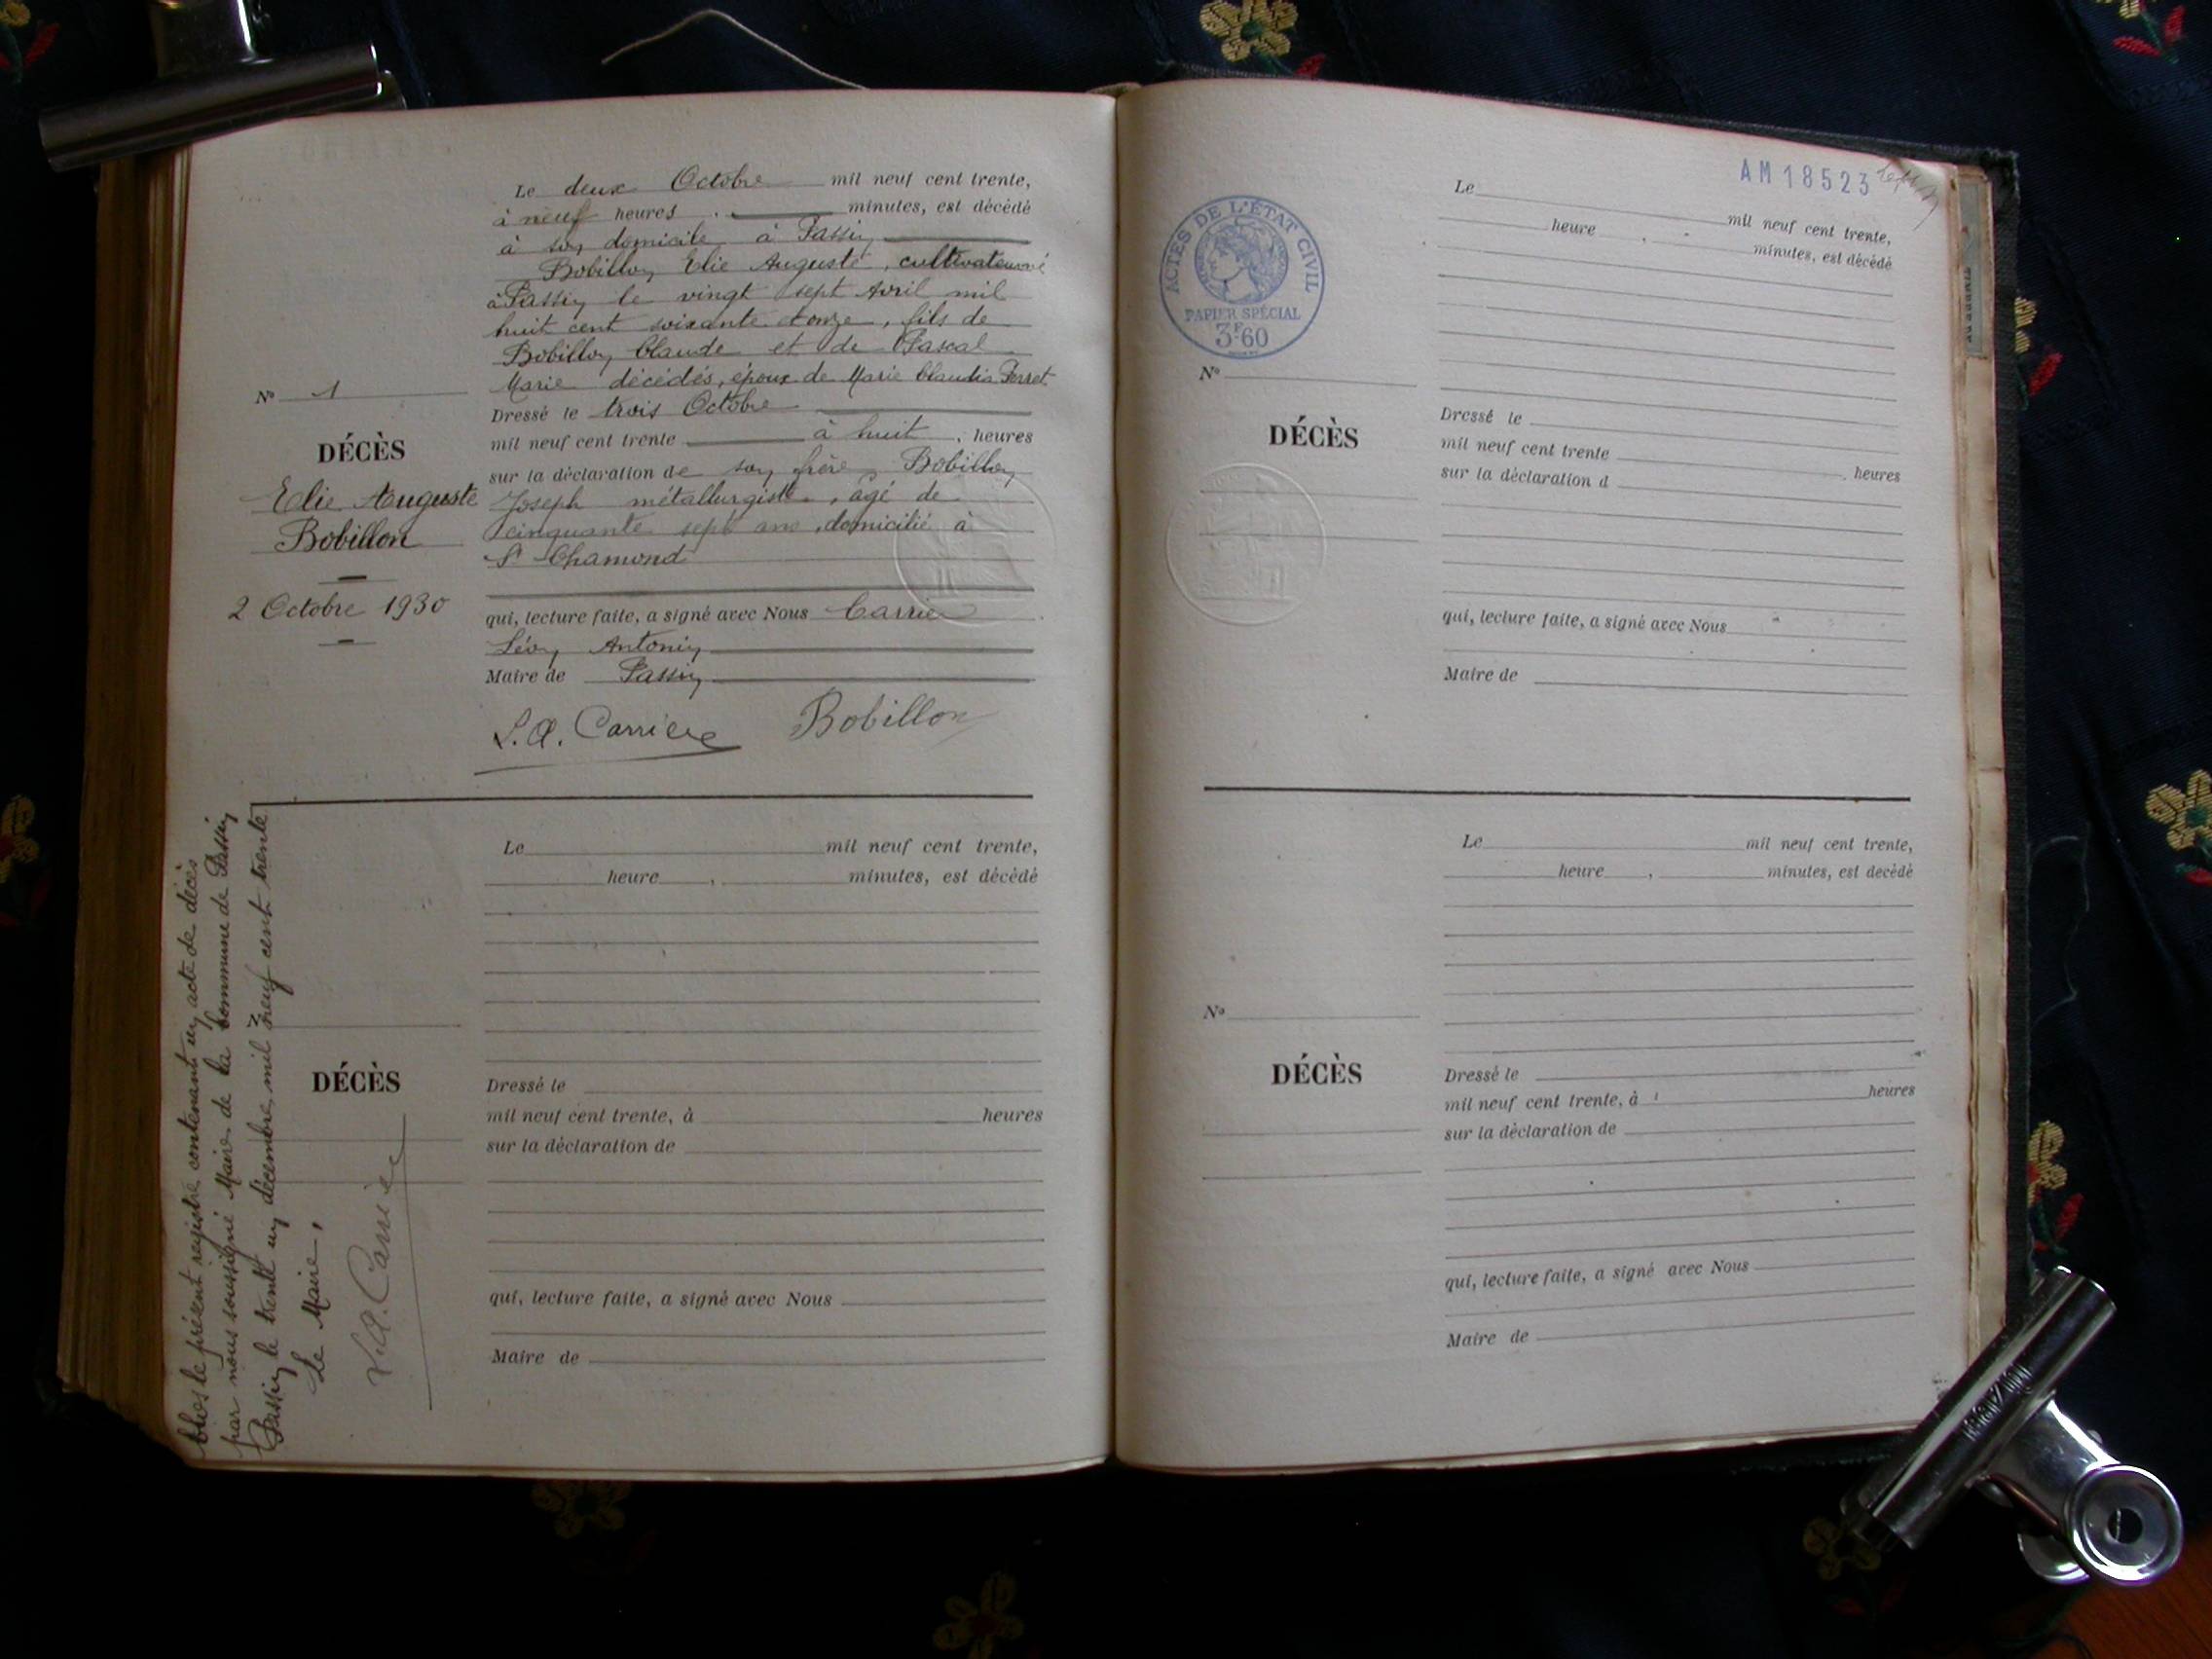 Le deux Octobre mil neuf cent trente,
à neuf heures , minutes, est décédé
à son domicile à Passin
Bobillon Elie Auguste, cultivateur né
à Passin le vingt sept Avril mil
huit cent soixante et onze, fils de
Bobillon Claude et de Pascal
Marie décédés, époux de Marie Claudia Perret.
Dressé le trois Octobre
mil neuf cent trente à huit , heures
sur la déclaration de son frère, Bobillon
Joseph métallurgiste, âgé de
cinquante sept ans, domicilié à
St Chamond
qui, lecture faite, a signé avec Nous Carrier
Lévy Antonin
Maire de Passin
L.A. Carrier Bobillon
No 1
DÉCÈS
Elie Auguste
Bobillon
2 Octobre 1930
Le mil neuf cent trente,
heure , minutes, est décédé
DÉCÈS
Dressé le
mil neuf cent trente, à heures
sur la déclaration de
qui, lecture faite, a signé avec Nous
Maire de
Clos le présent registre contenant un acte de décès
par nous soussigné Maire de la Commune de Passin
Passin le trente un décembre, mil neuf cent trente
Le Maire,
L.A. Carrier
AM 18523
ACTES DE L'ÉTAT CIVIL
PAPIER SPÉCIAL
3F.60
Le mil neuf cent trente,
heure , minutes, est décédé
No
DÉCÈS
Dressé le
mil neuf cent trente , heures
sur la déclaration d
qui, lecture faite, a signé avec Nous
Maire de
Le mil neuf cent trente,
heure , minutes, est décédé
No
DÉCÈS
Dressé le
mil neuf cent trente, à heures
sur la déclaration de
qui, lecture faite, a signé avec Nous
Maire de